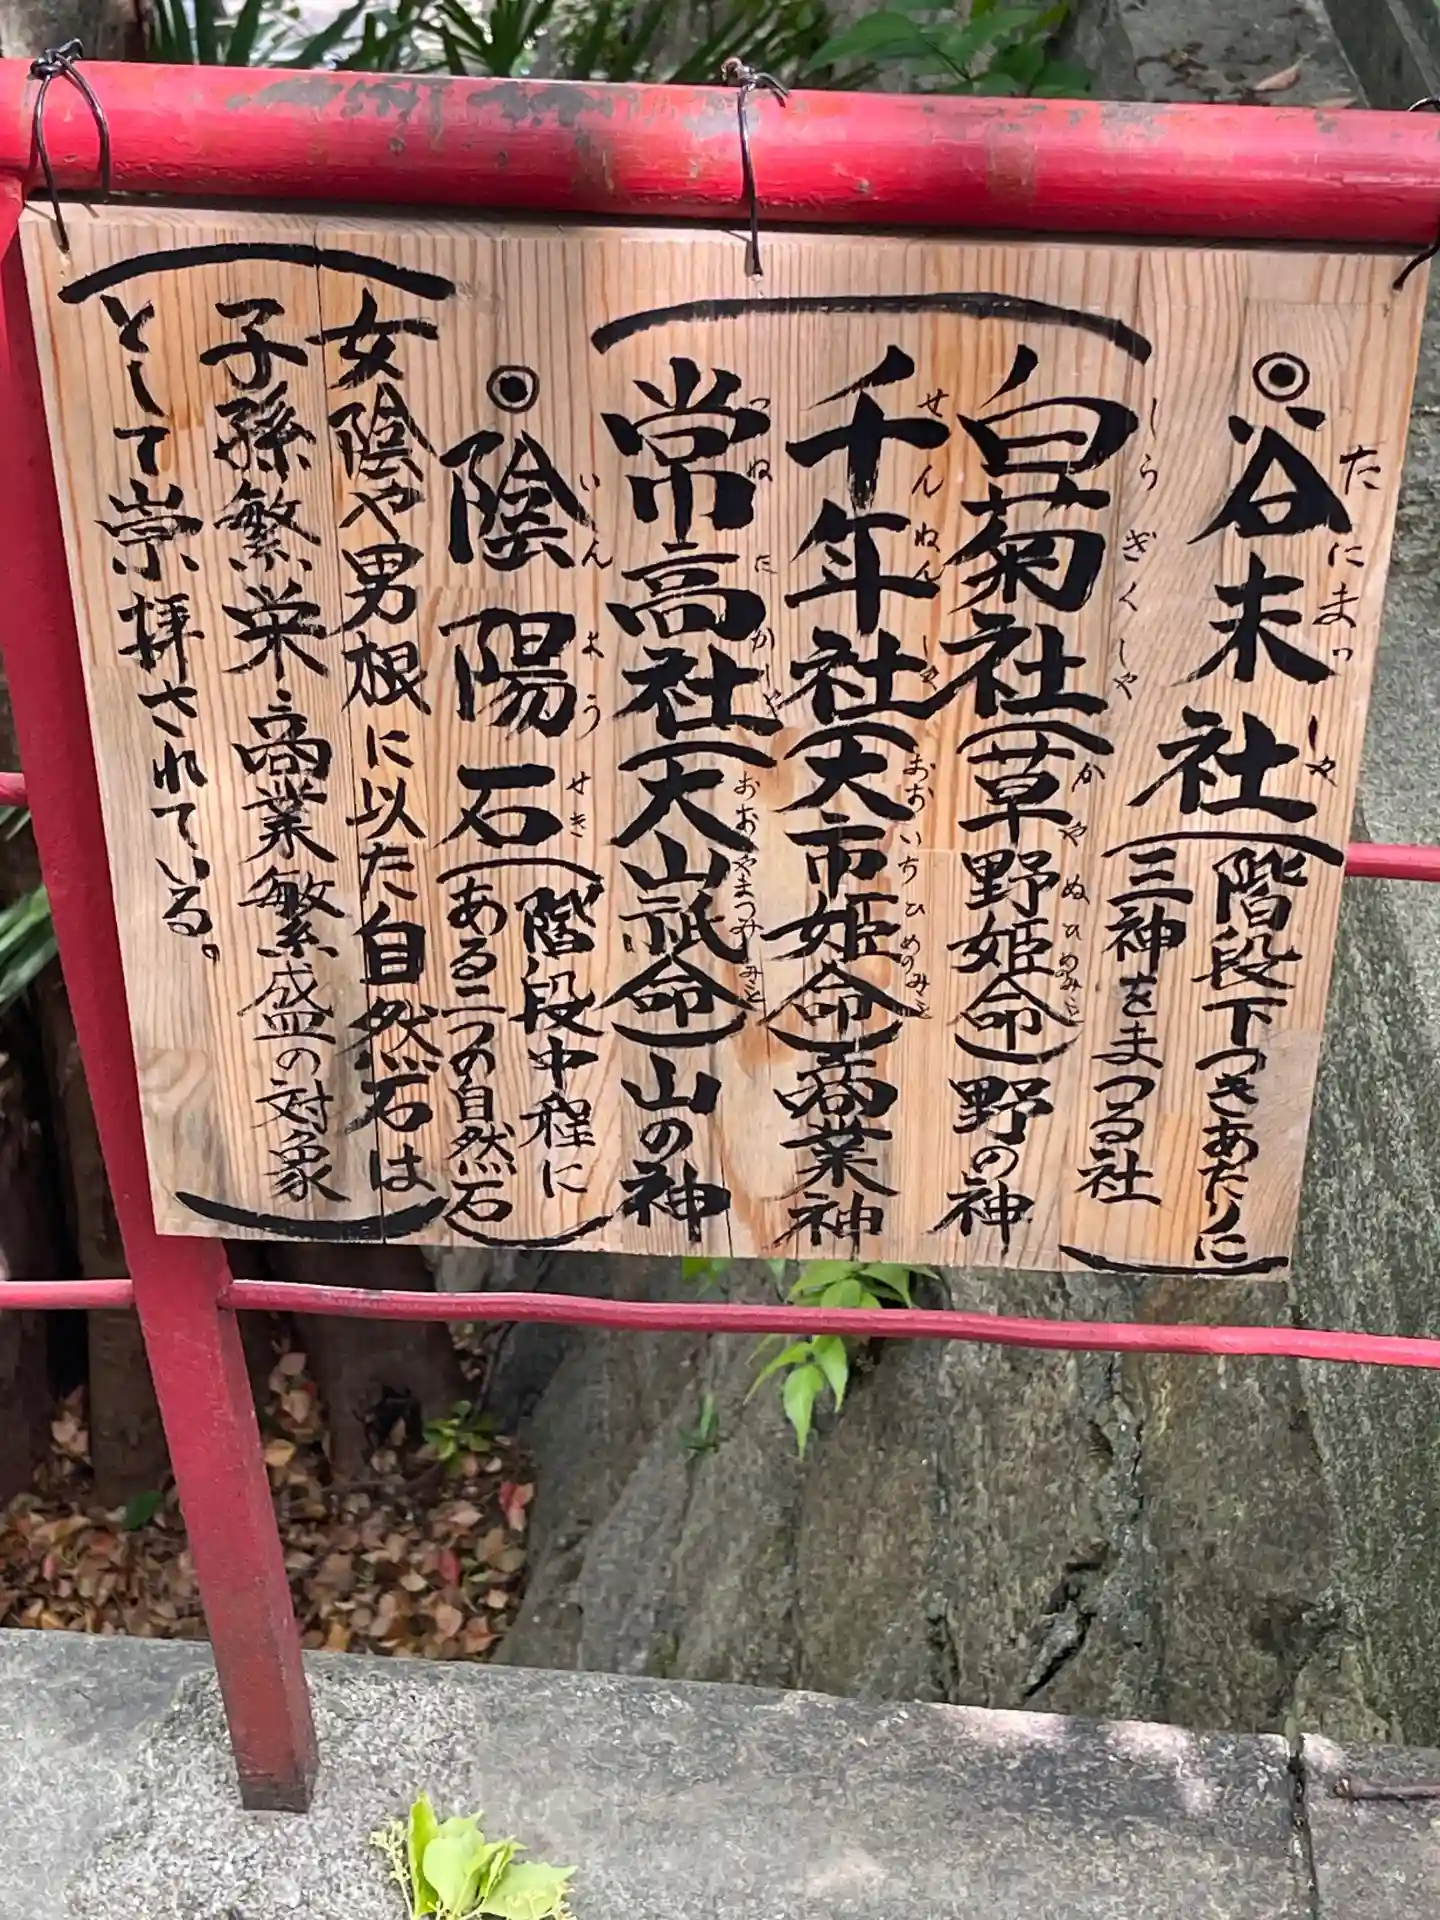 ◎谷末社(階段下つきあたりに
たにまっしゃ
三神をまつる社)
(白菊社(草野姫命)野の神
しらぎくしゃ かやぬひめのみこと
千年社(大市姫命)商業神
せんねんしゃ おおいちひめのみこと
常高社(大山祇命)山の神
つねたかしゃ おおやまつみのみこと
◎陰陽石(階段中程に
いんようせき
ある二つの自然石)
(女陰や男根に以た自然石は
子孫繁栄・商業繁盛の対象
として崇拝されている。)